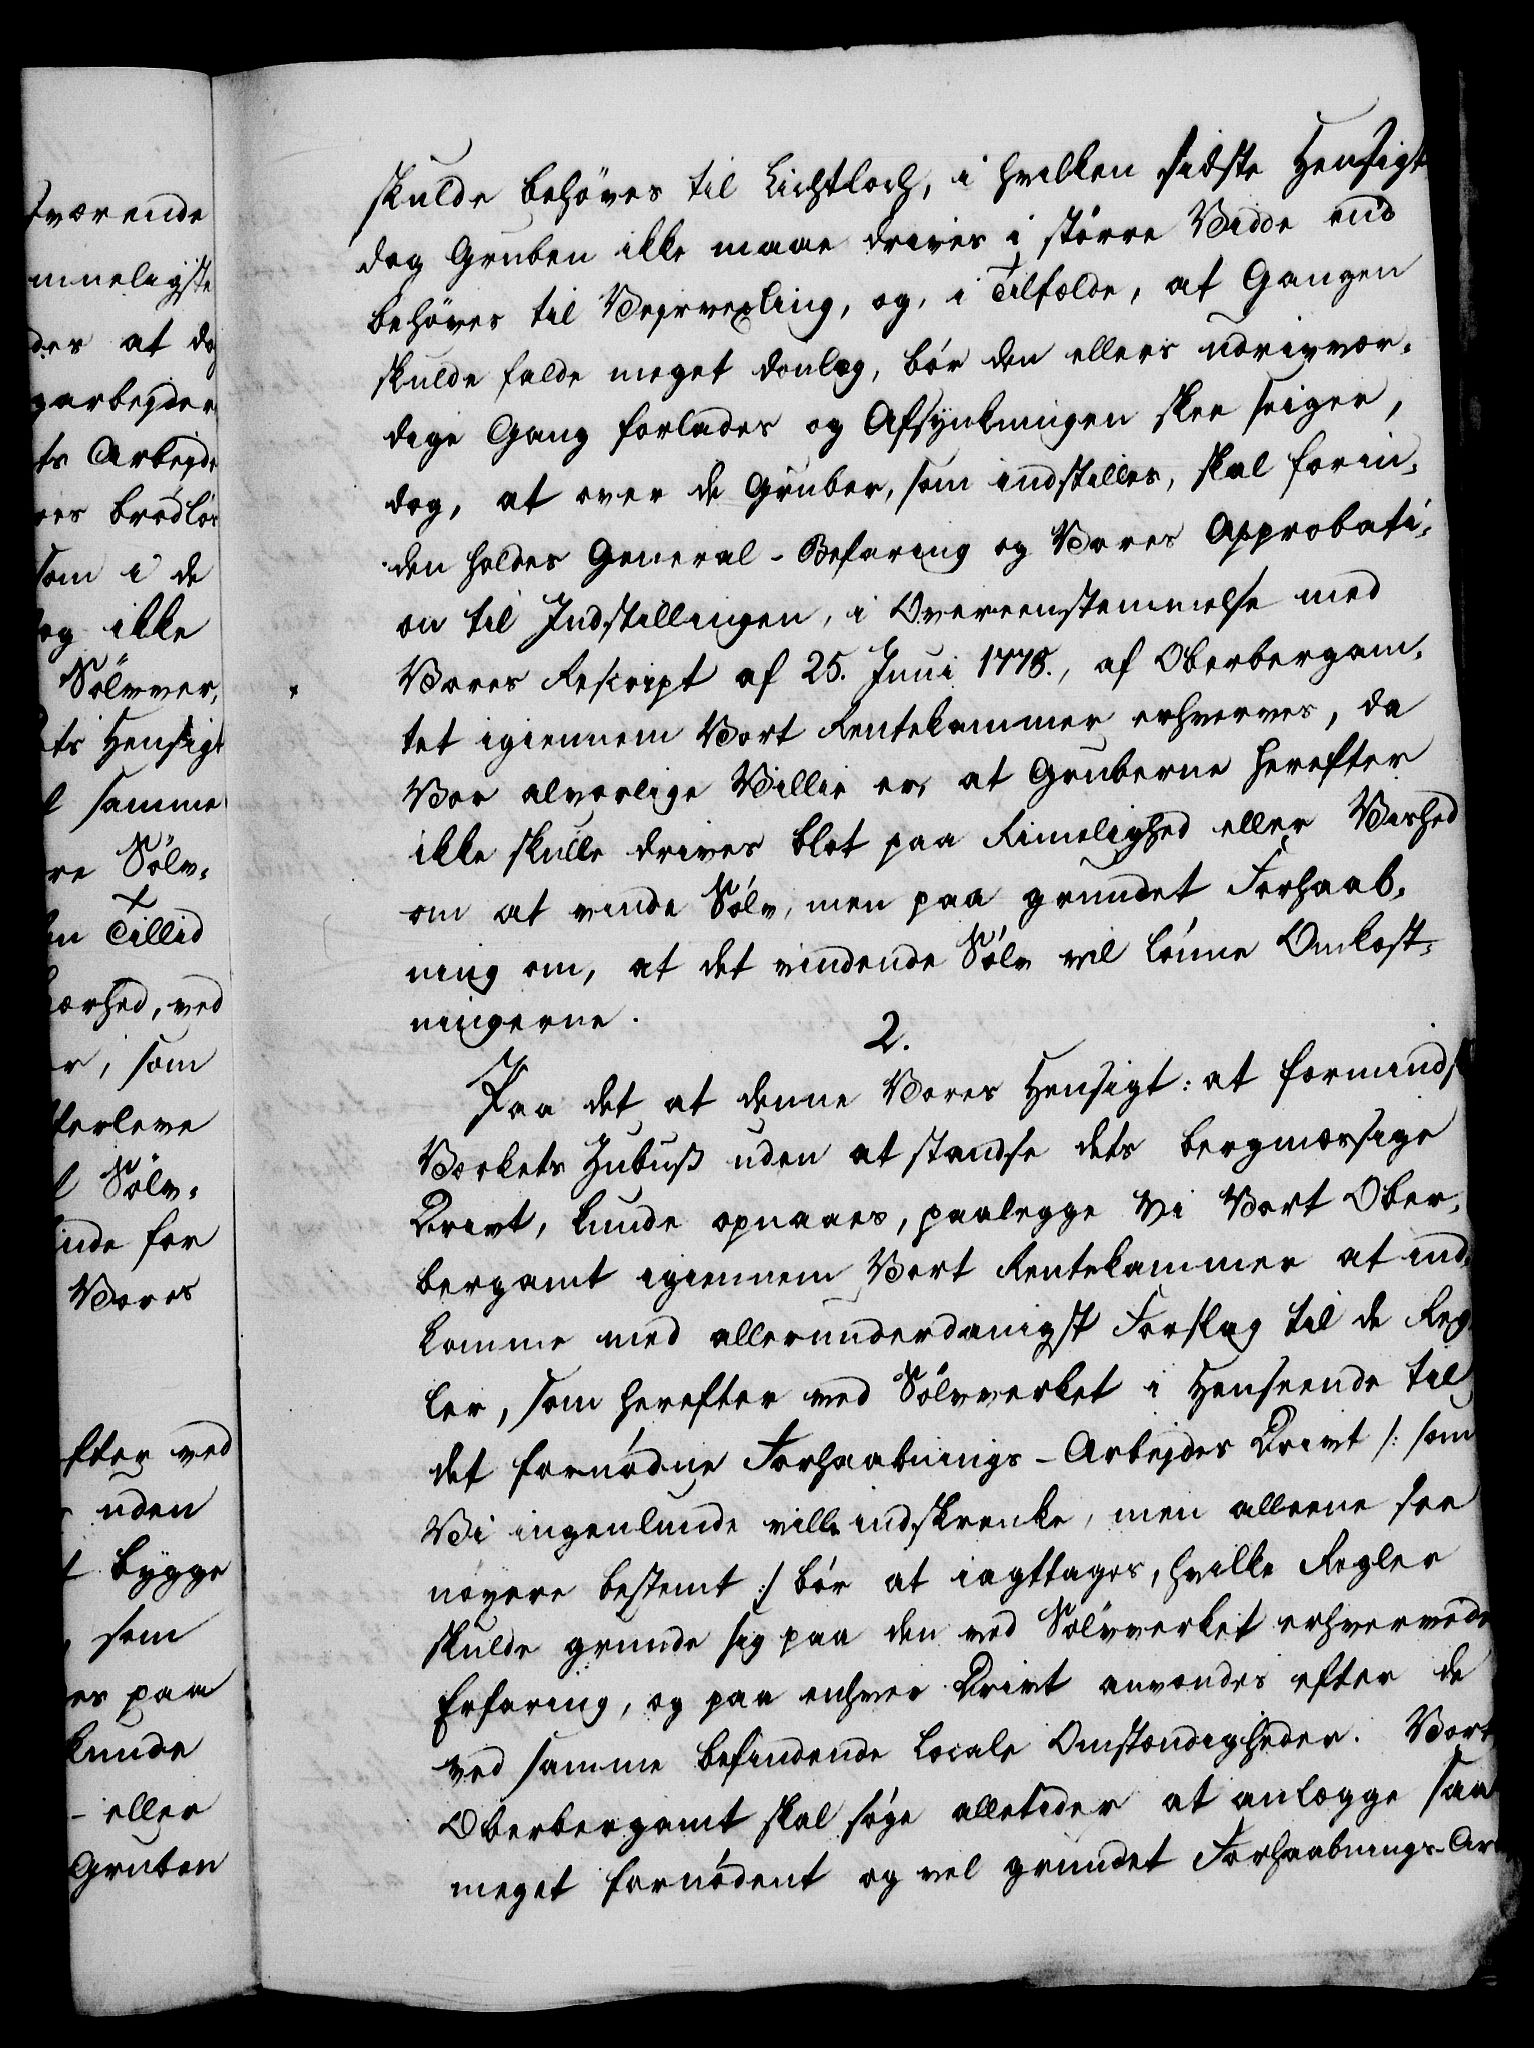 tværende
mueligste
des at do
garbejder
ts Arbejde
res brødløs
som i de
og ikke
Sölvver,
ts Hensigt
l samme
re Sölv,
en Tillid
barhed, ved
r, som
terleve
l Sölv,
inde for
Vores
fter ved
uden
t bygge
, som
es paa
kunde
- eller
Gruben
skulde behöves til Lichtloch, i hvilken sidste Hensigt
dog Gruben ikke maae drives i större Vidde end
behöves til Vejrvexling, og, i Tilfælde, at Gangen
skulde falde meget donlæg, bör den ellers udrivvær,
dige Gang forlades og Afsynkningen skee seiger,
dog, at over de Gruber, som indstilles, skal forin,
den holdes General-Befaring og Vores Approbati,
on til Indstillingen, i Overeenstemmelse med
Vores Rescript af 25. Juni 1778., af Oberbergam,
tet igiennem Vort Rentekammer erhverves, da
Vor alvorlige Villie er, at Gruberne herefter
ikke skulle drives blot paa Rimelighed eller Vished
om at vinde Sölv, men paa grundet Forhaab,
ning om, at det vindende Sölv vil lönne Omkost,
ningerne.
2.
Paa det at denne Vores Hensigt: at formindsk
Værkets Zubuß uden at standse dets bergmæssige
Drivt, kunde opnaaes, paalegge Vi Vort Ober,
bergamt igiennem Vort Rentekammer at ind,
komme med allerunderdanigst Forslag til de Reg,
ler, som herefter ved Sölvverket i Henseende til
det fornödne Forhaabnings-Arbejdes Drivt /: som
Vi ingenlunde ville indskrenke, men alleene see
nöyere bestemt :/ bör at iagttages, hvilke Regler
skulde grunde sig paa den ved Sölvverket erhvervede
Erfaring, og paa enhver Drivt anvendes efter de
ved samme befindende locale Omstændigheder. Vort
Oberbergamt skal söge alletider at anlægge saa
meget fornödent og vel grundet Forhaabnings-Ar